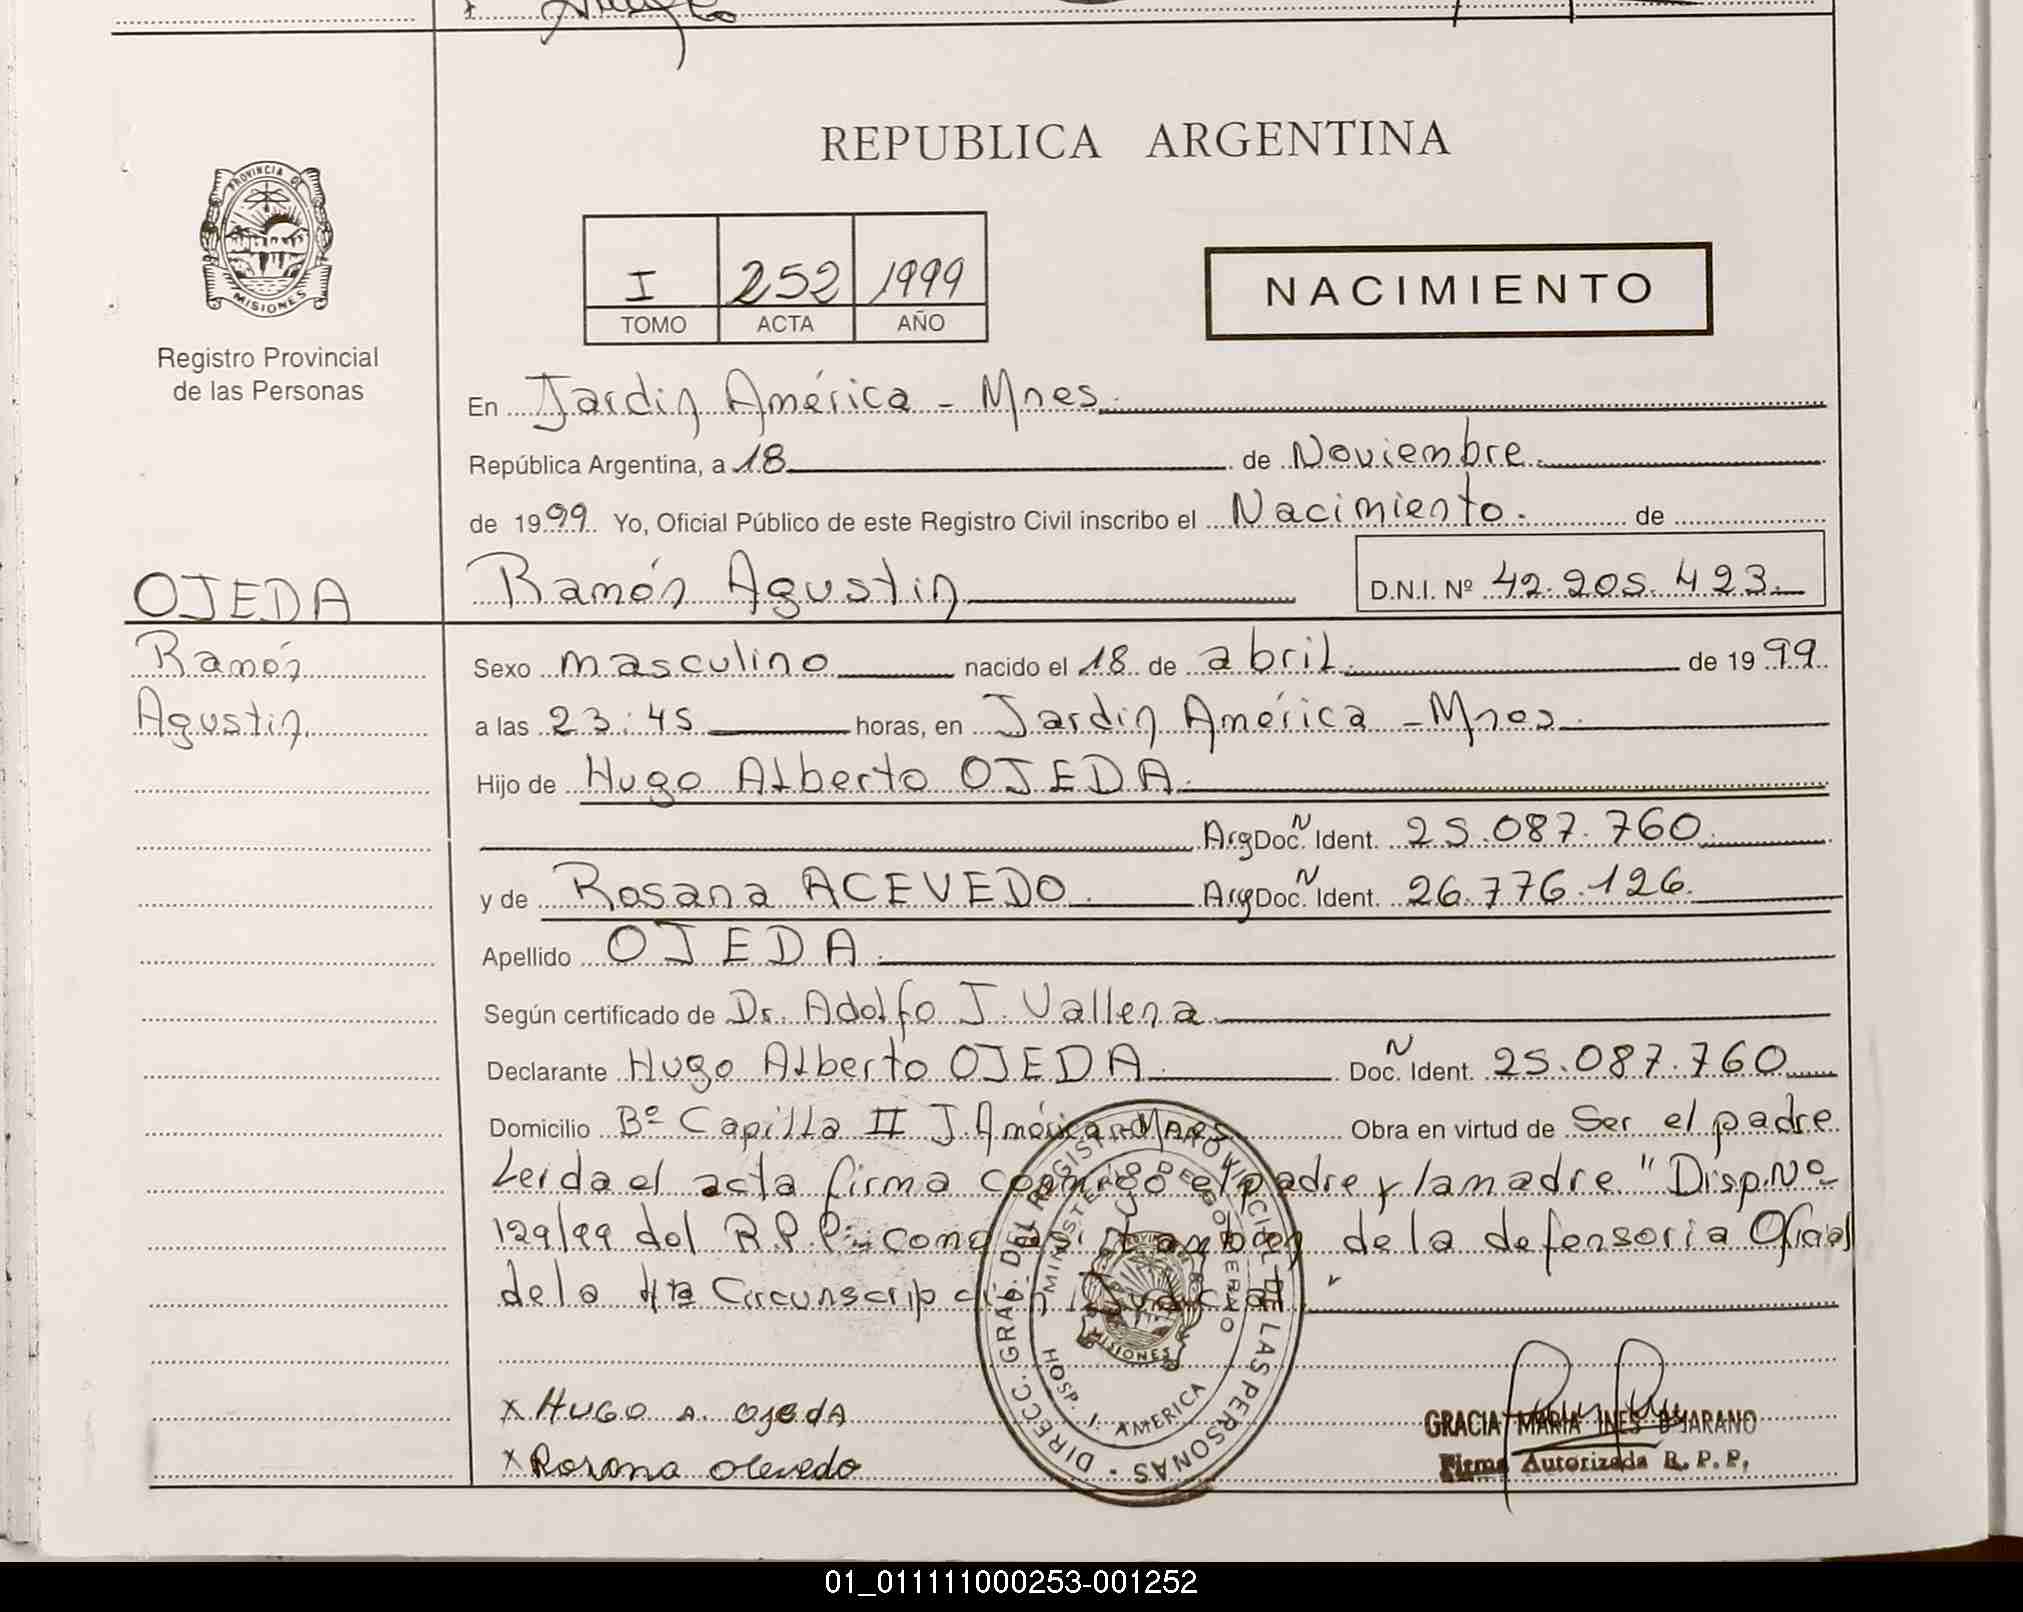 REPUBLICA ARGENTINA
PROVINCIA DE
MISIONES
Registro Provincial
de las Personas
I 252 1999
TOMO ACTA AÑO
NACIMIENTO
En Jardin América - Mnes.
República Argentina, a 18 de Noviembre.
de 1999 Yo, Oficial Público de este Registro Civil inscribo el Nacimiento. de
OJEDA
Ramón Agustin
D.N.I. Nº 42.205.423.
Ramón
Agustin
Sexo masculino nacido el 18 de abril. de 1999
a las 23:45 horas, en Jardin América - Mnes.
Hijo de Hugo Alberto OJEDA.
Arg Doc. N Ident. 25.087.760.
y de Rosana ACEVEDO. Arg Doc. N Ident. 26.776.126.
Apellido OJEDA.
Según certificado de Dr. Adolfo J. Vallena.
Declarante Hugo Alberto OJEDA. Doc. N Ident. 25.087.760
Domicilio Bº Capilla II J. América - Mnes. Obra en virtud de Ser el padre
Leida el acta firma conmigo el padre y la madre " Disp. Nº
129/99 del R.P.P. como asi tambien de la defensoria Oficial
de la 4ta Circunscripción Judicial
DIRECC. GRAL. DEL REGISTRO PROVINCIAL DE LAS PERSONAS
MINISTERIO DE GOBIERNO
HOSP. J. AMERICA
MISIONES
x HUGO A. OjedA
x Rosana Acevedo
GRACIA MARIA INES D'MARANO
Firma Autorizada R.P.P.
01_011111000253-001252